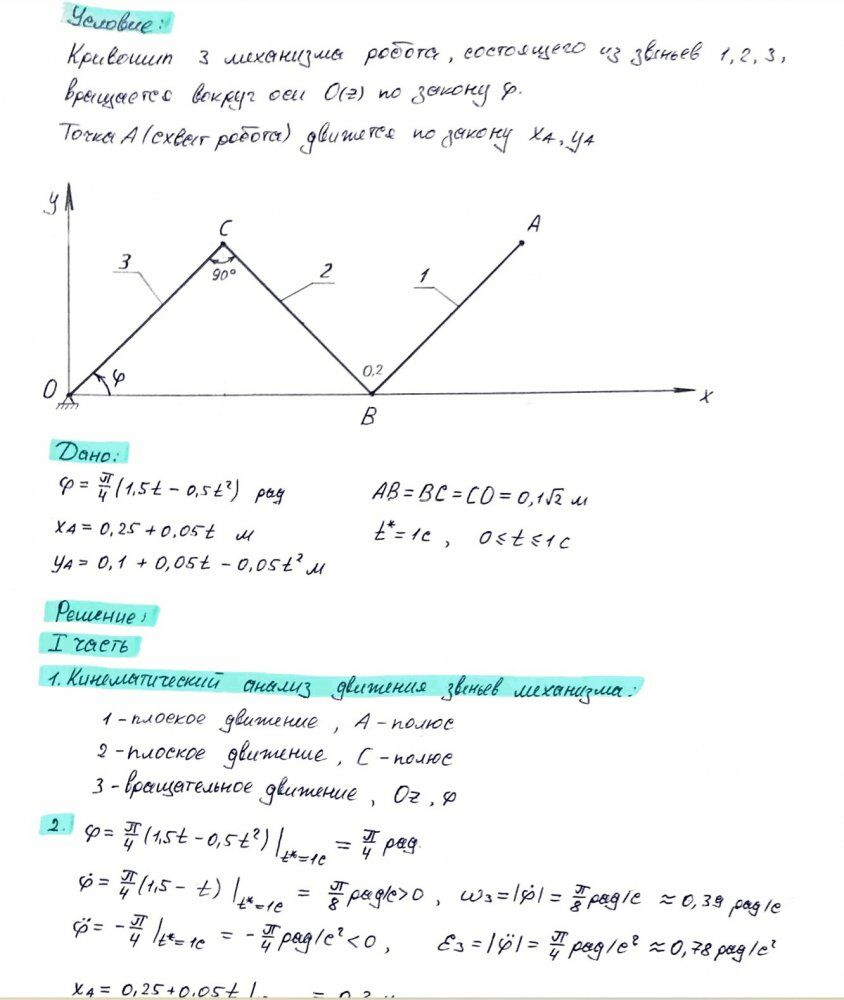 Условие:
Кривошип 3 механизма робота, состоящего из звеньев 1, 2, 3,
вращается вокруг оси O(z) по закону φ.
Точка A (схват робота) движется по закону xA, yA
y
C
A
3
90°
2
1
O
φ
0,2
x
B
Дано:
φ = π/4 (1,5t - 0,5t²) рад
AB = BC = CO = 0,1√2 м
xA = 0,25 + 0,05t м
t* = 1c , 0 ≤ t ≤ 1c
yA = 0,1 + 0,05t - 0,05t² м
Решение:
I часть
1. Кинематический анализ движения звеньев механизма:
1 - плоское движение , A - полюс
2 - плоское движение , C - полюс
3 - вращательное движение , Oz , φ
2. φ = π/4 (1,5t - 0,5t²) |t*=1c = π/4 рад.
φ̇ = π/4 (1,5 - t) |t*=1c = π/8 рад/c > 0 , ω3 = |φ̇| = π/8 рад/c ≈ 0,39 рад/c
φ̈ = - π/4 |t*=1c = - π/4 рад/c² < 0 , ε3 = |φ̈| = π/4 рад/c² ≈ 0,78 рад/c²
xA = 0,25 + 0,05t